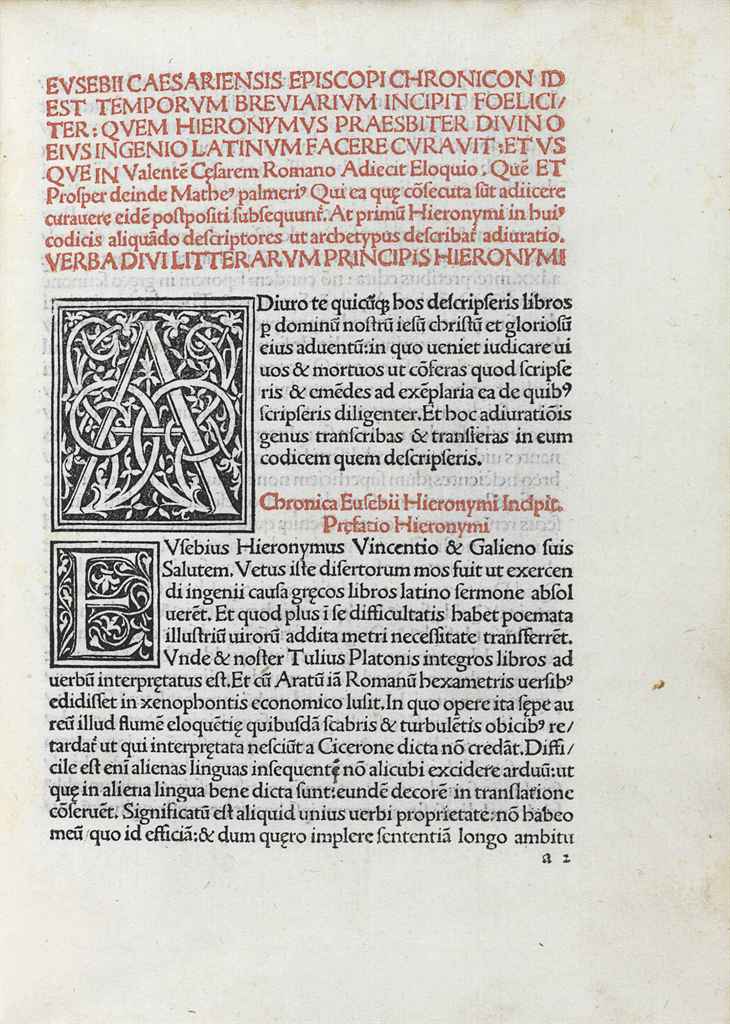 EVSEBII CAESARIENSIS EPISCOPI CHRONICON ID
EST TEMPORVM BREVIARIVM INCIPIT FOELICI/
TER: QVEM HIERONYMVS PRAESBITER DIVINO
EIVS INGENIO LATINVM FACERE CVRAVIT: ET VS
QVE IN Valentē Cęsarem Romano Adiecit Eloquio. Quē ET
Prosper deinde Matheꝰ palmeriꝰ Qui ea quę cōsecuta sūt adiicere
curauere eidē postpositi subsequunt̄. At primū Hieronymi in huiꝰ
codicis aliquādo descriptores ut archetypus describat̄ adiuratio.
VERBA DIVI LITTERARVM PRINCIPIS HIERONYMI
ADiuro te quicūqꝫ hos descripseris libros
ꝑ dominū nostrū iesū christū et gloriosū
eius aduentū: in quo ueniet iudicare ui
uos & mortuos ut cōferas quod scripse
ris & emēdes ad exēplaria ea de quibꝰ
scripseris diligenter. Et hoc adiuratiōis
genus transcribas & transferas in eum
codicem quem descripseris.
Chronica Eusebii Hieronymi Incipit.
Pręfatio Hieronymi
EVsebius Hieronymus Vincentio & Galieno suis
Salutem. Vetus iste disertorum mos fuit ut exercen
di ingenii causa gręcos libros latino sermone absol
uerēt. Et quod plus ī se difficultatis habet poemata
illustriū uirorū addita metri necessitate transferrēt.
Vnde & noster Tulius Platonis integros libros ad
uerbū interpretatus est. Et cū Aratū iā Romanū hexametris uersibꝰ
edidisset in xenophontis economico lusit. In quo opere ita sępe au
reū illud flumē eloquētię quibusdā scabris & turbulētis obicibꝰ re/
tardat̄ ut qui interpretata nesciūt a Cicerone dicta nō credāt. Diffi/
cile est enī alienas linguas insequentę nō alicubi excidere arduū: ut
quę in aliena lingua bene dicta sunt: eundē decorē in translatione
cōseruēt. Significatū est aliquid unius uerbi proprietate: nō habeo
meū quo id efficiā: & dum quęro implere sententiā longo ambitu
a 2